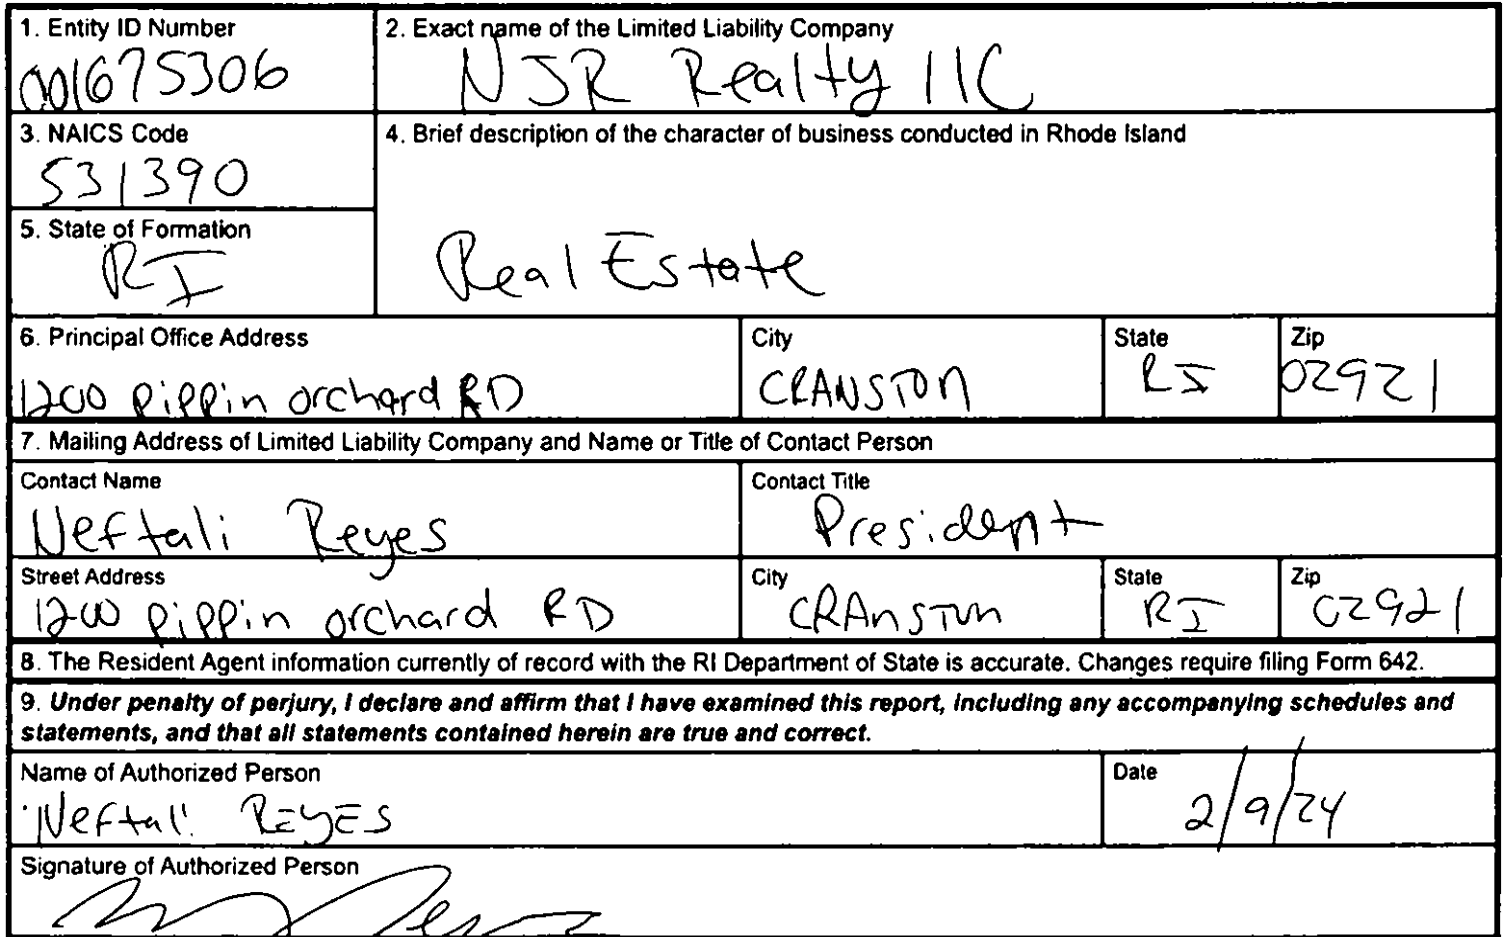 1. Entity ID Number
001675306
2. Exact name of the Limited Liability Company
NJR Realty llC
3. NAICS Code
531390
4. Brief description of the character of business conducted in Rhode Island
Real Estate
5. State of Formation
RI
6. Principal Office Address
1200 pippin orchard RD
City
CRANSTON
State
RI
Zip
02921
7. Mailing Address of Limited Liability Company and Name or Title of Contact Person
Contact Name
Neftali Reyes
Contact Title
President
Street Address
1200 pippin orchard RD
City
CRAnSTon
State
RI
Zip
02921
8. The Resident Agent information currently of record with the RI Department of State is accurate. Changes require filing Form 642.
9. Under penalty of perjury, I declare and affirm that I have examined this report, including any accompanying schedules and
statements, and that all statements contained herein are true and correct.
Name of Authorized Person
Neftali REYES
Date
2/9/24
Signature of Authorized Person